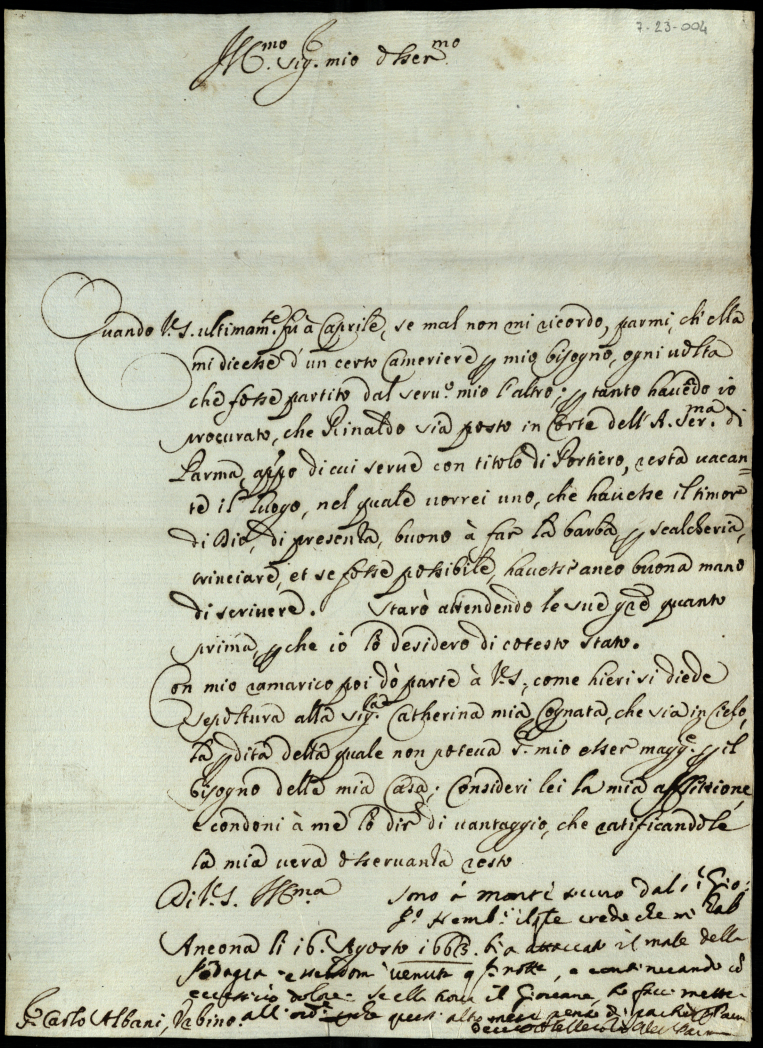 7-23-004
Ill.mo Sig.r mio Osser.mo
Quando V.S. ultimam.te fù à Caprile, se mal non mi ricordo, parmi, ch'ella
mi dicesse d'un certo Cameriere p mio bisogno, ogni volta
che fosse partito dal seru.o mio l'altro; p tanto havẽdo io
procurato, che Rinaldo sia posto in Corte dell'A. Ser.ma di
Parma, appo di cui serue con titolo di Portiero, resta uacan=
te il luogo, nel quale uorrei uno, che hauesse il timor
di Dio, di presenza, buono à far la barba, p scalcheria,
trinciare, et se fosse possibile, hauesse anco buona mano
di scriuere. Starò attendendo le sue quanto
prima, p che io lo desidero di cotesto stato.
Con mio ramarico poi dò parte à V.S., come hieri si diede
sepoltura alla Sig.ra Catherina mia Cognata, che sia in Cielo,
la pdita della quale non poteua p mio esser magg.e p il
bisogno della mia Casa; Consideri lei la mia afflitione,
e condoni à me lo dir di uantaggio, che ratificandole
la mia uera osseruanza resto
Di V.S. Ill.ma sono à monte dal
crede che mi
Ancona li 16 Agosto 1663. il male della
Podagra uenuta notte, e continuando
dolore se ella troua il Giouane, lo facci mette
all'ord.e
S.r Carlo Albani, Urbino.